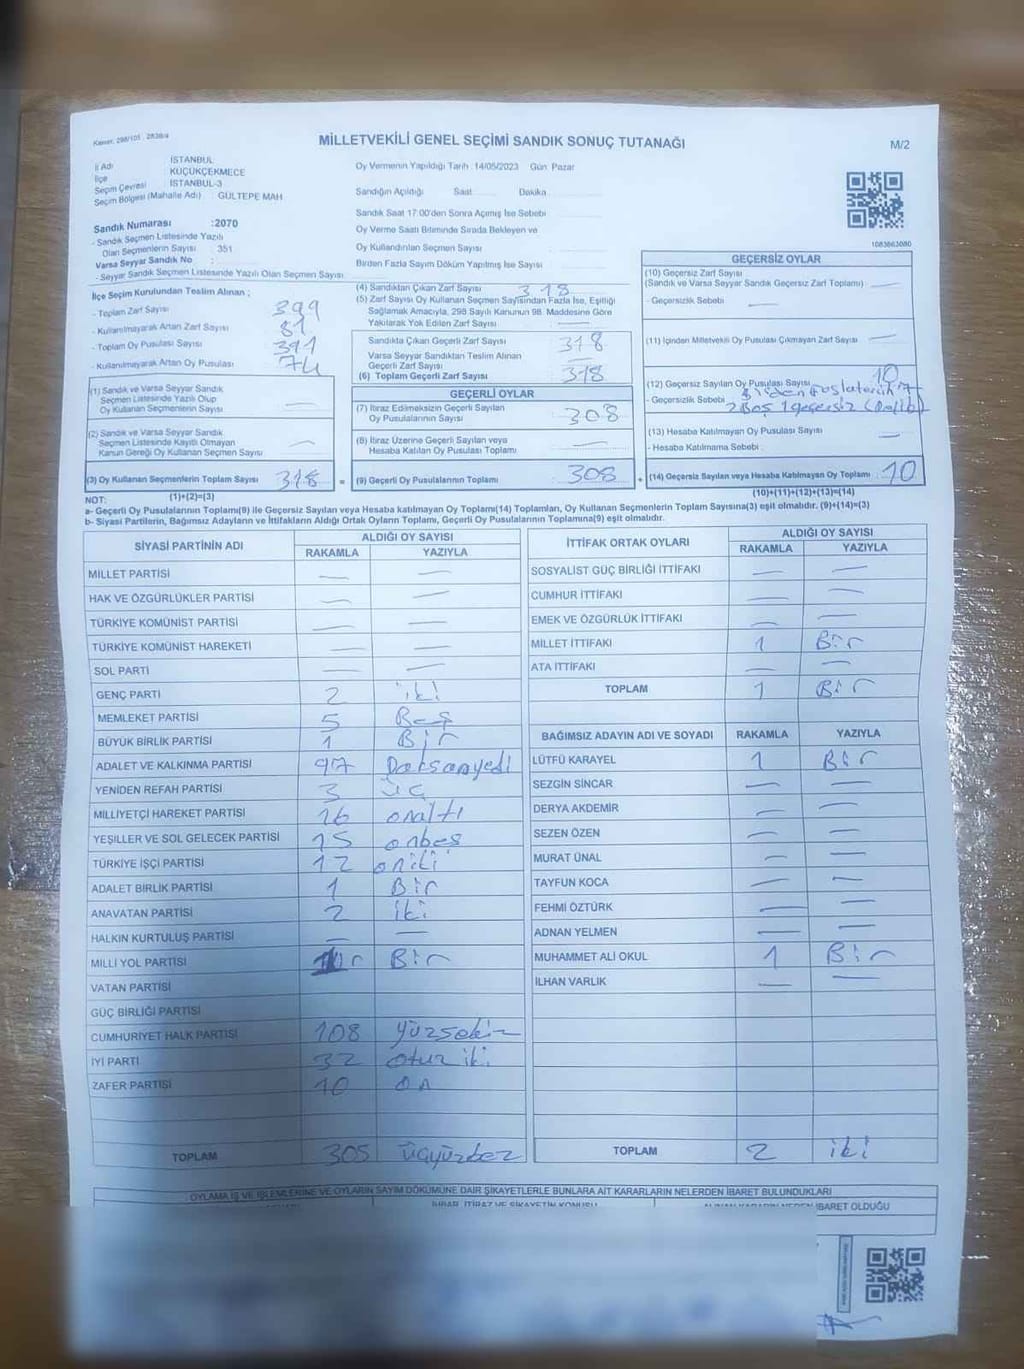 Kanun: 298/105 2839/4
MİLLETVEKİLİ GENEL SEÇİMİ SANDIK SONUÇ TUTANAĞI
M/2
İl Adı İSTANBUL
İlçe KÜÇÜKÇEKMECE
Seçim Çevresi İSTANBUL-3
Seçim Bölgesi (Mahalle Adı) : GÜLTEPE MAH
Sandık Numarası :2070
- Sandık Seçmen Listesinde Yazılı
Olan Seçmenlerin Sayısı : 351
Varsa Seyyar Sandık No :
- Seyyar Sandık Seçmen Listesinde Yazılı Olan Seçmen Sayısı :
Oy Vermenin Yapıldığı Tarih : 14/05/2023 Gün: Pazar
Sandığın Açıldığı Saat Dakika
Sandık Saat 17:00'den Sonra Açılmış İse Sebebi
Oy Verme Saati Bitiminde Sırada Bekleyen ve
Oy Kullandırılan Seçmen Sayısı :
Birden Fazla Sayım Döküm Yapılmış İse Sayısı :
1083663080
İlçe Seçim Kurulundan Teslim Alınan ;
- Toplam Zarf Sayısı 399
- Kullanılmayarak Artan Zarf Sayısı 81
- Toplam Oy Pusulası Sayısı 391
- Kullanılmayarak Artan Oy Pusulası 74
(1) Sandık ve Varsa Seyyar Sandık
Seçmen Listesinde Yazılı Olup
Oy Kullanan Seçmenlerin Sayısı —
(2) Sandık ve Varsa Seyyar Sandık
Seçmen Listesinde Kayıtlı Olmayan
Kanun Gereği Oy Kullanan Seçmen Sayısı —
(3) Oy Kullanan Seçmenlerin Toplam Sayısı 318 =
(4) Sandıktan Çıkan Zarf Sayısı 318
(5) Zarf Sayısı Oy Kullanan Seçmen Sayısından Fazla İse, Eşitliği
Sağlamak Amacıyla, 298 Sayılı Kanunun 98. Maddesine Göre
Yakılarak Yok Edilen Zarf Sayısı —
Sandıkta Çıkan Geçerli Zarf Sayısı 318
Varsa Seyyar Sandıktan Teslim Alınan
Geçerli Zarf Sayısı
(6) Toplam Geçerli Zarf Sayısı 318
GEÇERLİ OYLAR
(7) İtiraz Edilmeksizin Geçerli Sayılan
Oy Pusulalarının Sayısı 308
(8) İtiraz Üzerine Geçerli Sayılan veya
Hesaba Katılan Oy Pusulası Toplamı —
(9) Geçerli Oy Pusulalarının Toplamı 308 +
GEÇERSİZ OYLAR
(10) Geçersiz Zarf Sayısı
(Sandık ve Varsa Seyyar Sandık Geçersiz Zarf Toplamı) —
- Geçersizlik Sebebi —
(11) İçinden Milletvekili Oy Pusulası Çıkmayan Zarf Sayısı —
(12) Geçersiz Sayılan Oy Pusulası Sayısı 10
- Geçersizlik Sebebi
2 Boş 1 geçersiz
(13) Hesaba Katılmayan Oy Pusulası Sayısı —
- Hesaba Katılmama Sebebi
(14) Geçersiz Sayılan veya Hesaba Katılmayan Oy Toplamı 10
NOT: (1)+(2)=(3) (10)+(11)+(12)+(13)=(14)
a- Geçerli Oy Pusulalarının Toplamı(9) ile Geçersiz Sayılan veya Hesaba katılmayan Oy Toplamı(14) Toplamları, Oy Kullanan Seçmenlerin Toplam Sayısına(3) eşit olmalıdır. (9)+(14)=(3)
b- Siyasi Partilerin, Bağımsız Adayların ve İttifakların Aldığı Ortak Oyların Toplamı, Geçerli Oy Pusulalarının Toplamına(9) eşit olmalıdır.
SİYASİ PARTİNİN ADI ALDIĞI OY SAYISI
RAKAMLA YAZIYLA
MİLLET PARTİSİ — —
HAK VE ÖZGÜRLÜKLER PARTİSİ — —
TÜRKİYE KOMÜNİST PARTİSİ — —
TÜRKİYE KOMÜNİST HAREKETİ — —
SOL PARTİ — —
GENÇ PARTİ 2 iki
MEMLEKET PARTİSİ 5 Beş
BÜYÜK BİRLİK PARTİSİ 1 Bir
ADALET VE KALKINMA PARTİSİ 97 Doksanyedi
YENİDEN REFAH PARTİSİ 3 Üç
MİLLİYETÇİ HAREKET PARTİSİ 16 onaltı
YEŞİLLER VE SOL GELECEK PARTİSİ 15 onbeş
TÜRKİYE İŞÇİ PARTİSİ 12 oniki
ADALET BİRLİK PARTİSİ 1 Bir
ANAVATAN PARTİSİ 2 iki
HALKIN KURTULUŞ PARTİSİ — —
MİLLİ YOL PARTİSİ Bir
VATAN PARTİSİ
GÜÇ BİRLİĞİ PARTİSİ
CUMHURİYET HALK PARTİSİ 108 yüzsekiz
İYİ PARTİ 32 otuz iki
ZAFER PARTİSİ 10 on
TOPLAM 305 üçyüzbez
İTTİFAK ORTAK OYLARI ALDIĞI OY SAYISI
RAKAMLA YAZIYLA
SOSYALİST GÜÇ BİRLİĞİ İTTİFAKI — —
CUMHUR İTTİFAKI — —
EMEK VE ÖZGÜRLÜK İTTİFAKI — —
MİLLET İTTİFAKI 1 Bir
ATA İTTİFAKI — —
TOPLAM 1 Bir
BAĞIMSIZ ADAYIN ADI VE SOYADI RAKAMLA YAZIYLA
LÜTFÜ KARAYEL 1 Bir
SEZGİN SİNCAR — —
DERYA AKDEMİR — —
SEZEN ÖZEN — —
MURAT ÜNAL — —
TAYFUN KOCA — —
FEHMİ ÖZTÜRK — —
ADNAN YELMEN — —
MUHAMMET ALİ OKUL 1 Bir
İLHAN VARLIK — —
TOPLAM 2 iki
OYLAMA İŞ VE İŞLEMLERİNE VE OYLARIN SAYIM DÖKÜMÜNE DAİR ŞİKAYETLERLE BUNLARA AİT KARARLARIN NELERDEN İBARET BULUNDUKLARI
İHBAR, İTİRAZ VE ŞİKAYETİN KONUSU
ALINAN KARARIN NEDEN İBARET OLDUĞU